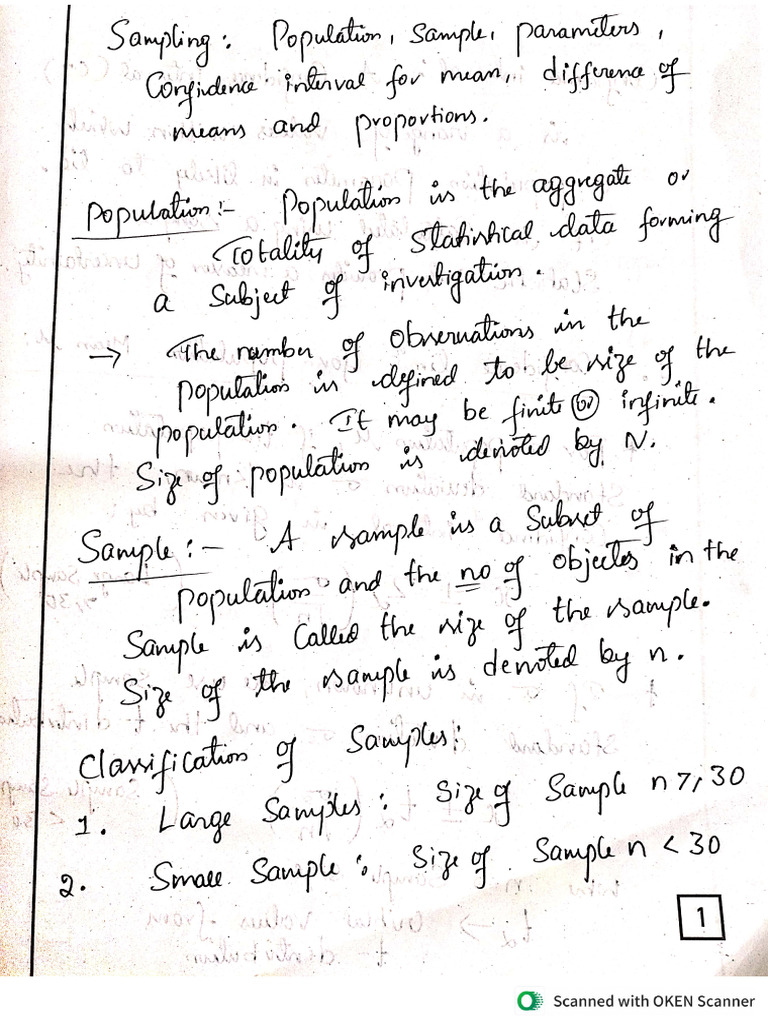 Sampling: Population, Sample, parameters,
Confidence interval for mean, difference of
means and proportions.
Population:- Population is the aggregate or
Totality of Statistical data forming
a Subject of investigation.
→ The number of Observations in the
population is defined to be size of the
population. It may be finite (or) infinite.
Size of population is denoted by N.
Sample:- A sample is a Subset of
population and the no of objects in the
Sample is Called the size of the sample.
Size of the sample is denoted by n.
Classification of Samples:
1. Large Samples: Size of Sample n ≥ 30
2. Small Sample: Size of Sample n < 30
1
Scanned with OKEN Scanner